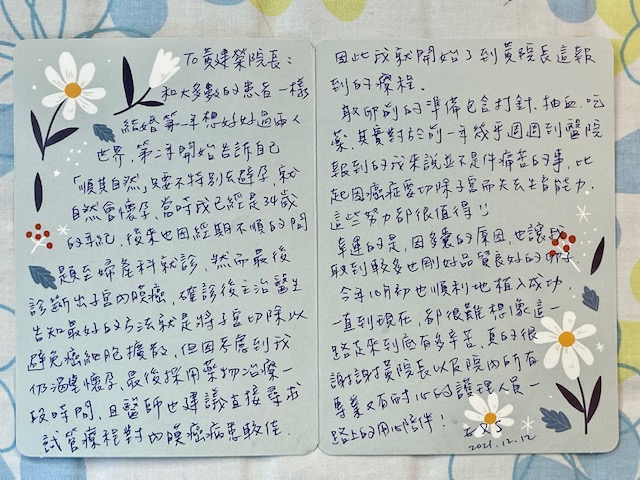 To 黃建榮院長：
和大多數的患者一樣
結婚第一年想好好過兩人
世界，第二年開始告訴自己
「順其自然」只要不特別去避孕，就
自然會懷孕，當時我已經是34歲
的年紀，後來也因經期不順的問
題至婦產科就診，然而最後
診斷出子宮內膜癌，確診後主治醫生
告知最好的方法就是將子宮切除以
避免癌細胞擴散，但因考慮到我
仍渴望懷孕，最後採用藥物治療一
段時間，且醫師也建議直接尋求
試管療程對內膜癌病患較佳．
因此我就開始了到黃院長這報
到的療程．
取卵前的準備包含打針、抽血、吃
藥，其實對於前一年幾乎週週到醫院
報到的我來說並不是件痛苦的事，比
起因癌症要切除子宮而失去生育能力．
這些努力都很值得!!
幸運的是，因多囊的原因，也讓我
取到較多也剛好品質良好的卵子
今年10月初也順利地植入成功，
一直到現在，都很難想像這一
路走來到底有多辛苦，真的很
謝謝黃院長以及院內所有
專業又有耐心的護理人員一
路上的用心陪伴！
2021.12.12